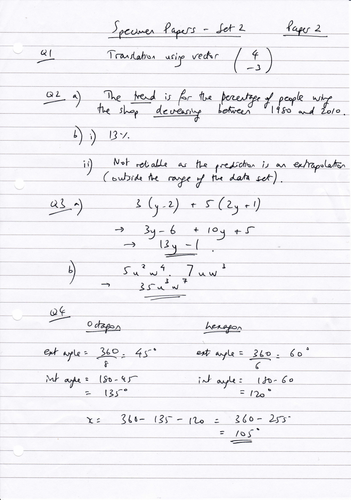 Specimen Papers - Set 2 Paper 2
Q1 Translation using vector (4 -3)
Q2 a) The trend is for the percentage of people using
the shop decreasing between 1980 and 2010.
b) i) 13%
ii) Not reliable as the prediction is an extrapolation
(outside the range of the data set).
Q3 a) 3(y-2) + 5(2y+1)
→ 3y-6 + 10y+5
→ 13y-1.
b) 5u²w⁴. 7uw³
→ 35u³w⁷
Q4
Octagon hexagon
ext angle = 360/8 = 45° ext angle = 360/6 = 60°
int angle = 180-45 int angle = 180-60
= 135° = 120°
x = 360-135-120 = 360-255°
= 105°